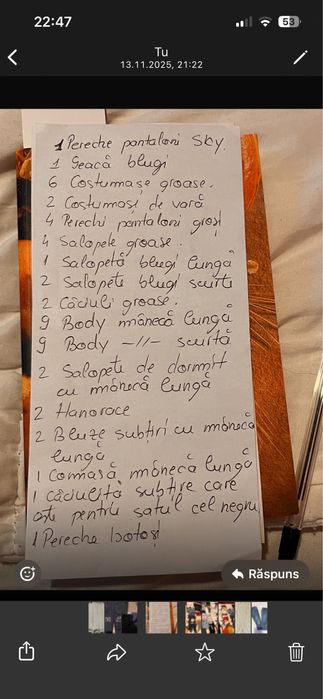 22:47
53
Tu
13.11.2025, 21:22
1 Pereche pantaloni Sky.
1 Geacă blugi
6 Costumașe groase.
2 Costumași de vară
4 Perechi pantaloni groși
4 Salopete groase.
1 Salopetă blugi lungă
2 Salopete blugi scurte
2 Căciuli groase.
9 Body mânecă lungă
9 Body -//- scurtă
2 Salopete de dormit
cu mânecă lungă
2 Hanorace
2 Bluze subțiri cu mânecă
lungă
1 Cămasă mânecă lungă
1 căciuliță subțire care
este pentru satul cel negru
1 Pereche botoși
Răspuns